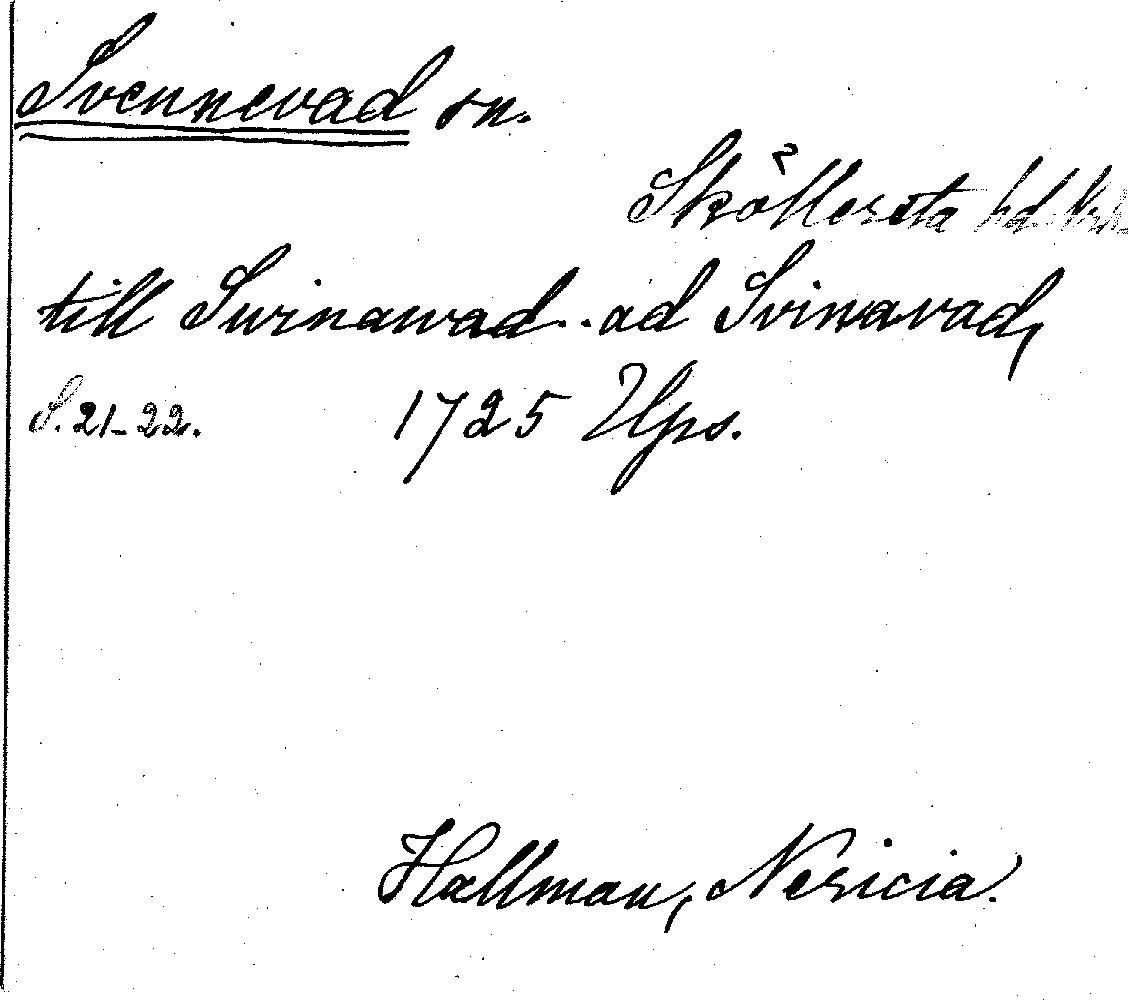 Svennevad sn.
Sköllersta hd
till Swinawad..ad Svinavad,
S. 21-22. 1725 Ups.
Hallman, Nericia.